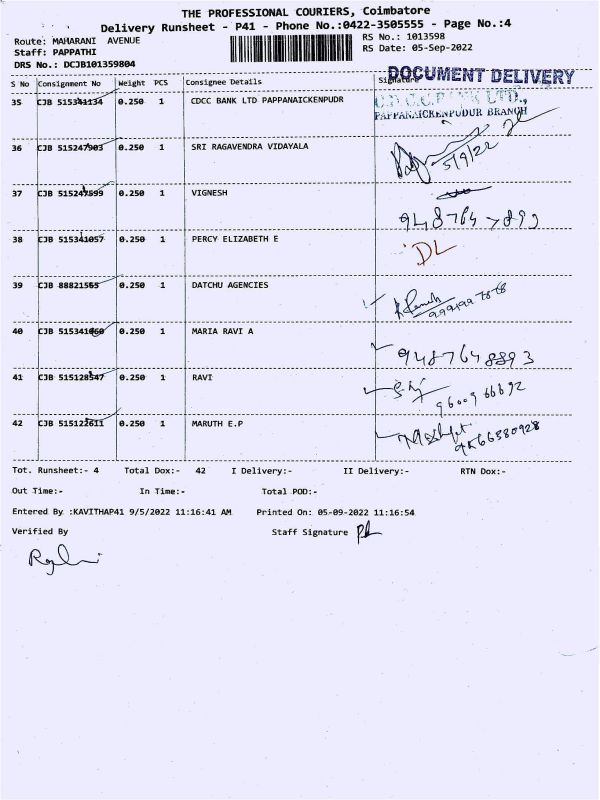 THE PROFESSIONAL COURIERS, Coimbatore
Delivery Runsheet - P41 - Phone No.:0422-3505555 - Page No.:4
Route: MAHARANI AVENUE
RS No.: 1013598
Staff: PAPPATHI
RS Date: 05-Sep-2022
DRS No.: DCJB101359804
DOCUMENT DELIVERY
S No Consignment No Weight PCS Consignee Details Signature
35 CJB 515341134 0.250 1 CDCC BANK LTD PAPPANAICKENPUDR
C.D.C.C.BANK LTD.,
PAPPANAICKENPUDUR BRANCH
36 CJB 515247903 0.250 1 SRI RAGAVENDRA VIDAYALA
5/9/22
37 CJB 515247599 0.250 1 VIGNESH
38 CJB 515341057 0.250 1 PERCY ELIZABETH E
DL
39 CJB 88821565 0.250 1 DATCHU AGENCIES
40 CJB 515341060 0.250 1 MARIA RAVI A
9487648893
41 CJB 515128547 0.250 1 RAVI
9600966692
42 CJB 515122611 0.250 1 MARUTH E.P
9566580928
Tot. Runsheet:- 4 Total Dox:- 42 I Delivery:- II Delivery:- RTN Dox:-
Out Time:- In Time:- Total POD:-
Entered By :KAVITHAP41 9/5/2022 11:16:41 AM Printed On: 05-09-2022 11:16:54
Verified By Staff Signature